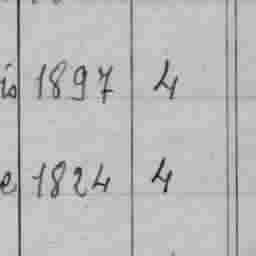 is 1897 4
e 1824 4